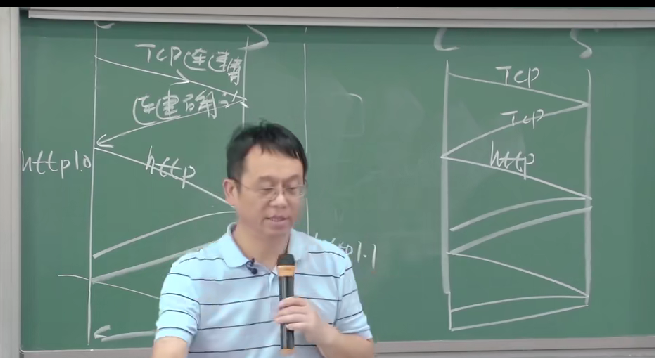 C
S
TCP连建请
连建确认
http1.0
http
http1.1
C
S
TCP
TCP
http